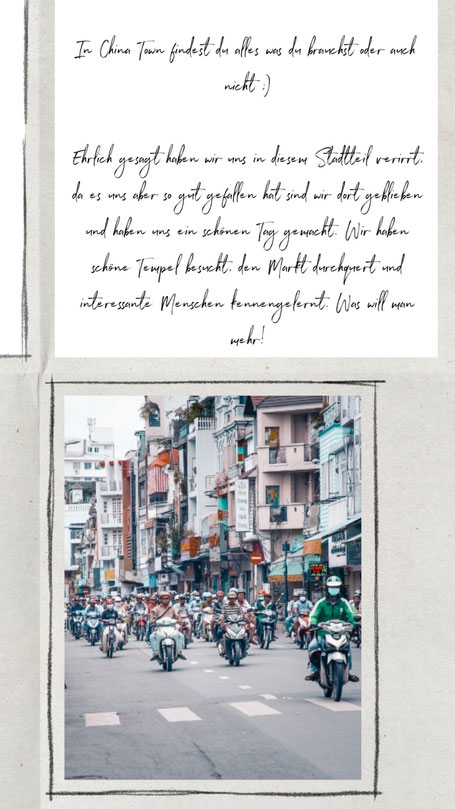 In China Town findest du alles was du brauchst oder auch
nicht :)
Ehrlich gesagt haben wir uns in diesem Stadtteil verirrt,
da es uns aber so gut gefallen hat sind wir dort geblieben
und haben uns ein schönen Tag gemacht. Wir haben
schöne Tempel besucht, den Markt durchquert und
interessante Menschen kennengelernt. Was will man
mehr!